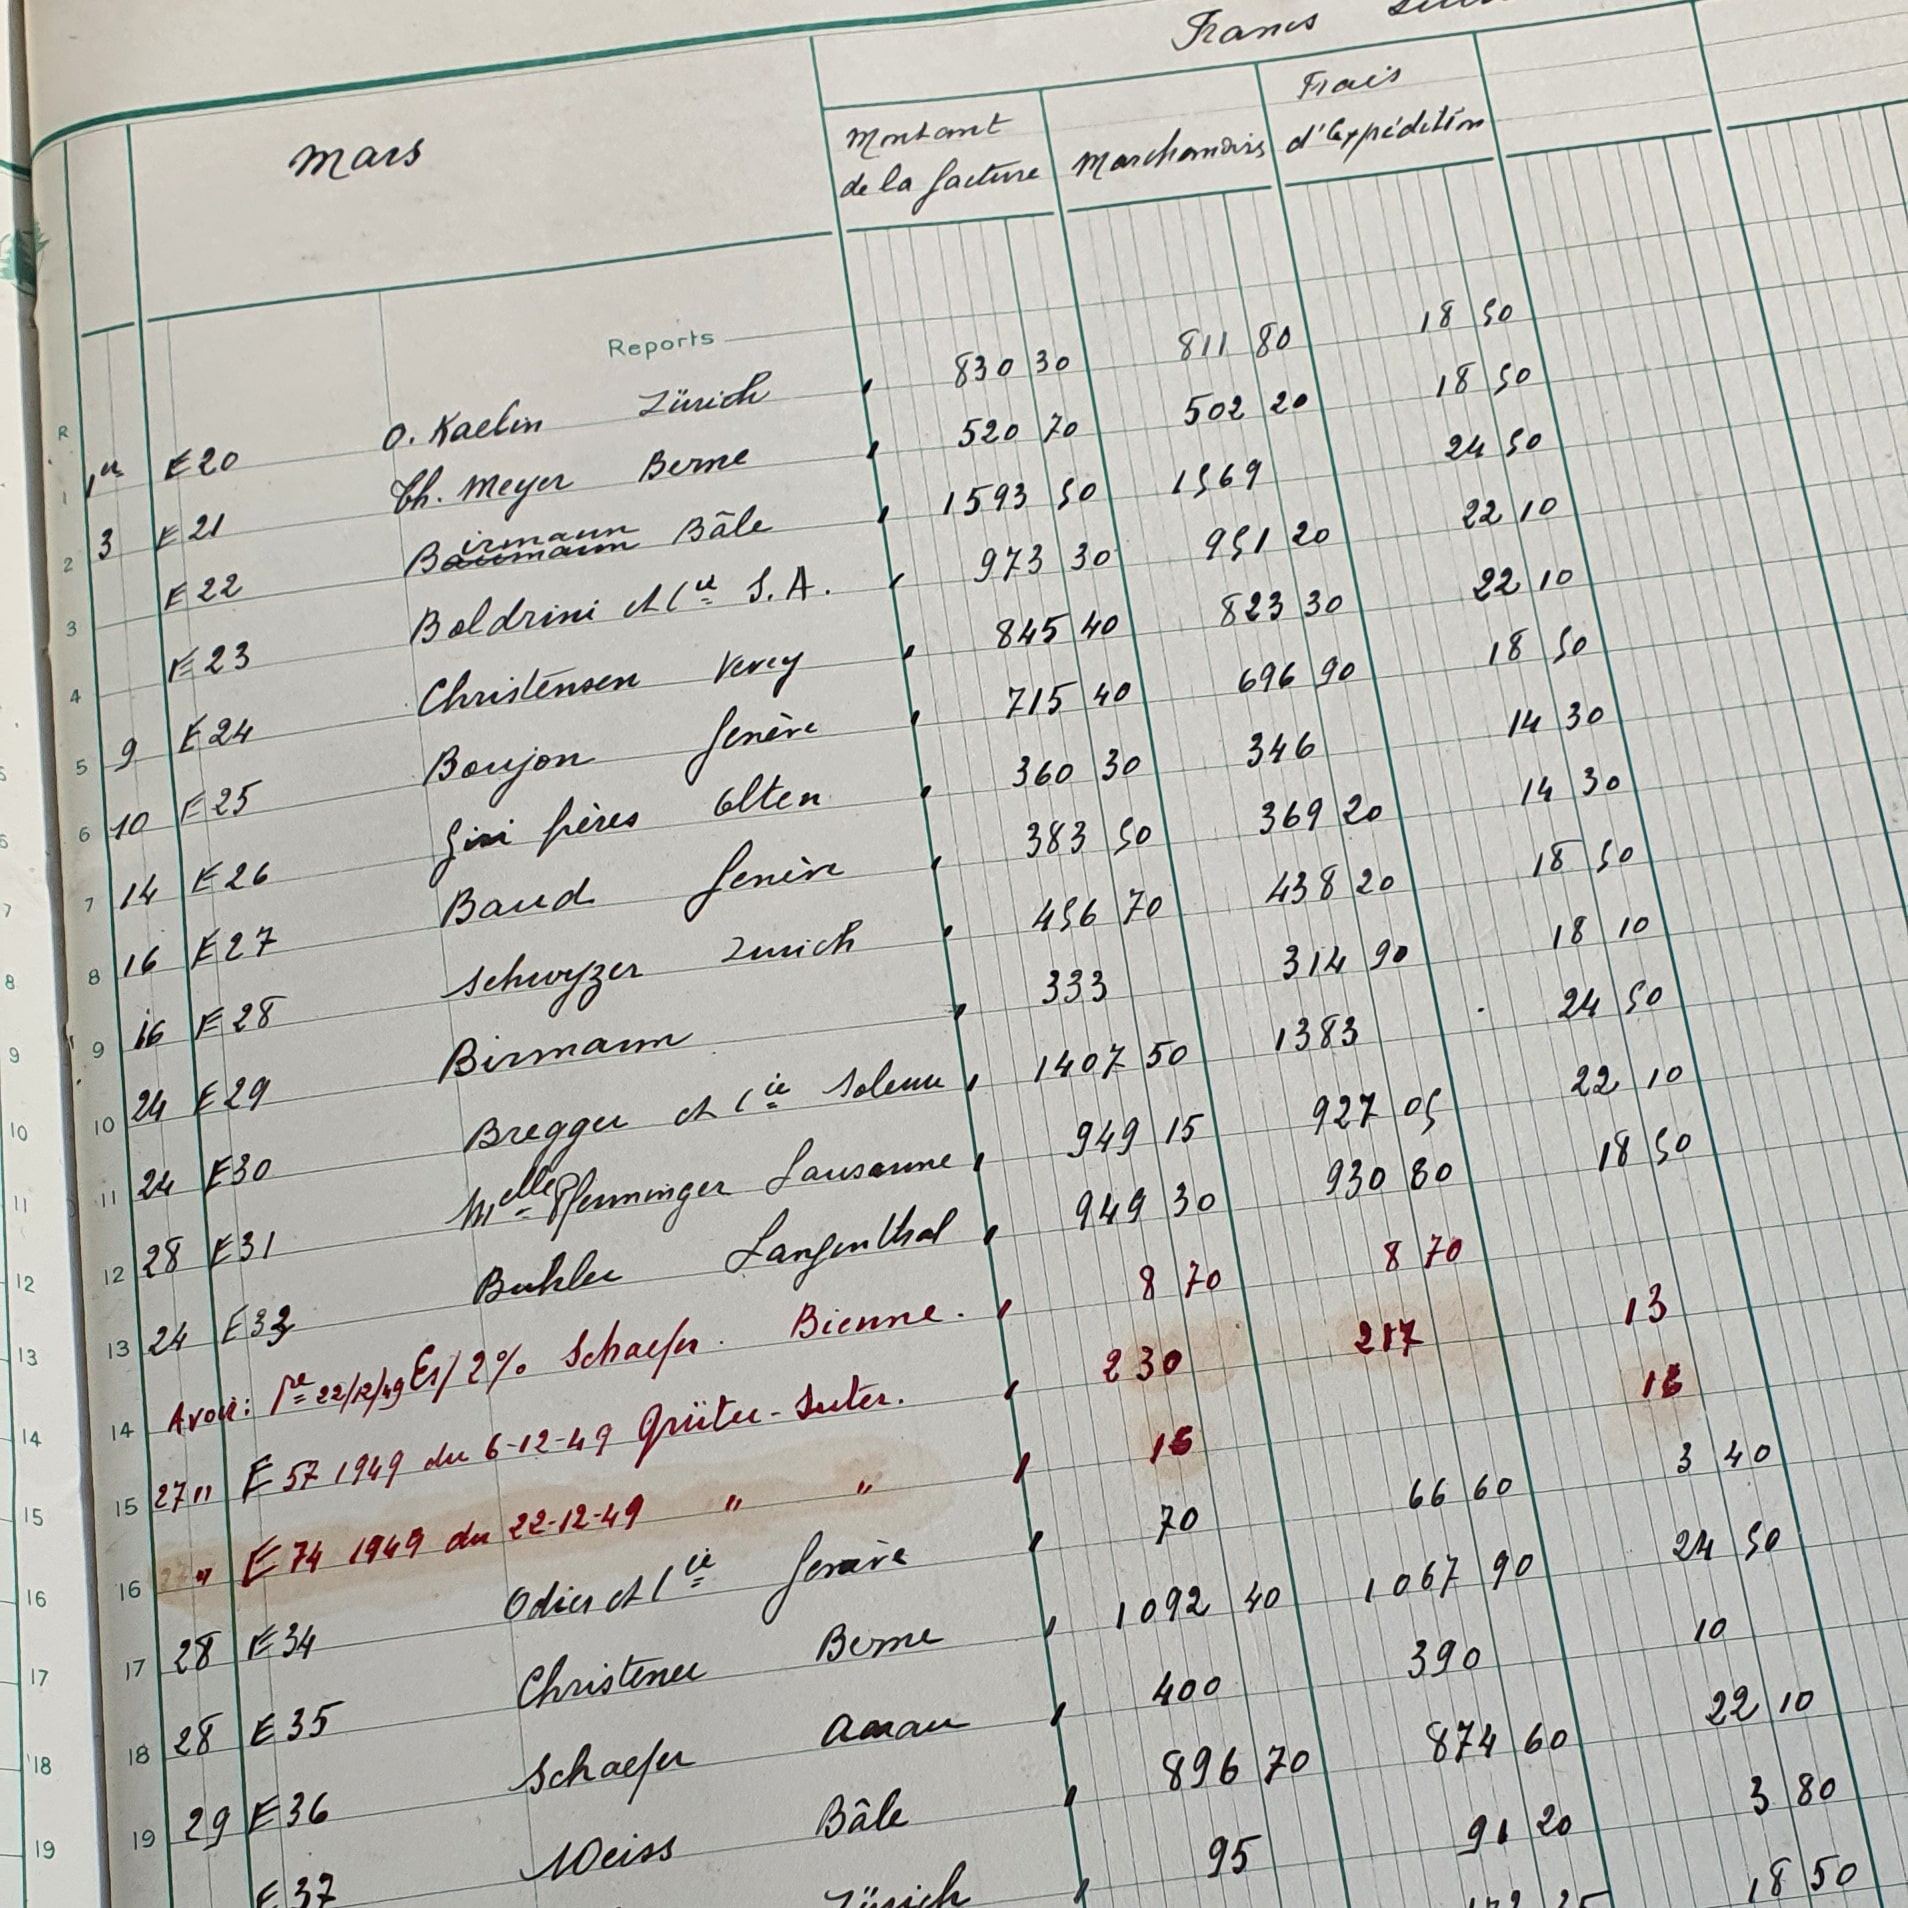 Francs
Mars
Montant de la facture
Marchandises
Frais d'expédition
Reports
R
1 1er E 20 O. Kaelin Zürich 830 30 811 80 18 50
2 3 E 21 Th. Meyer Berne 520 70 502 20 18 50
3 E 22 Birmann Bâle 1593 50 1569 24 50
4 E 23 Boldrini et Cie S.A. 973 30 951 20 22 10
5 9 E 24 Christensen Vevey 845 40 823 30 22 10
6 10 E 25 Boujon Genève 715 40 696 90 18 50
7 14 E 26 Giri frères Olten 360 30 346 14 30
8 16 E 27 Baud Genève 383 50 369 20 14 30
9 16 E 28 Schwyzer Zurich 456 70 438 20 18 50
10 24 E 29 Birmann 333 314 90 18 10
11 24 E 30 Bregger et Cie Soleure 1407 50 1383 24 50
12 28 E 31 Melle Pfenninger Lausanne 949 15 927 05 22 10
13 24 E 33 Buhler Langenthal 949 30 930 80 18 50
14 Avoir: 22/12/49 2% Schaefer. Bienne. 8 70 8 70
15 27 " E 57 1949 du 6-12-49 Grüter-Suter. 230 217 13
16 " E 74 1949 du 22-12-49 " "
17 28 E 34 Odier et Cie Genève 70 66 60 3 40
18 28 E 35 Christener Berne 1092 40 1067 90 24 50
19 29 E 36 Schaefer Aarau 400 390 10
E 37 Weiss Bâle 896 70 874 60 22 10
Zürich 95 91 20 3 80
18 50
7
8
9
10
11
12
13
14
15
16
17
18
19